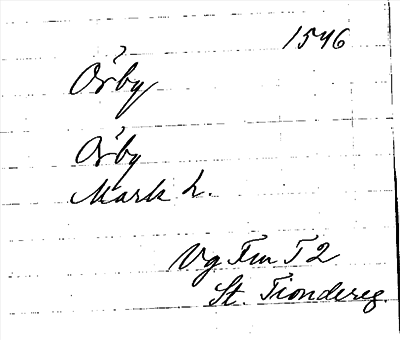 1546
Örby
Örby
Mark h.
Vg Fm T 2
St. Tiondereg.